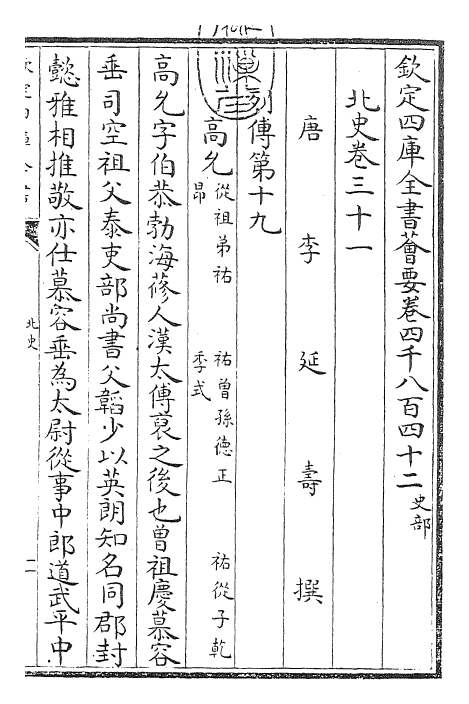 欽定四庫全書薈要卷四千八百四十二史部
北史卷三十一
唐李延壽撰
列傳第十九
高允從祖弟祐 祐曾孫德正 祐從子乾
昂 季式
高允字伯恭勃海蓨人漢太傅裒之後也曾祖慶慕容
垂司空祖父泰吏部尚書父韜少以英朗知名同郡封
懿雅相推敬亦仕慕容垂為太尉從事中郎道武平中
北史
二